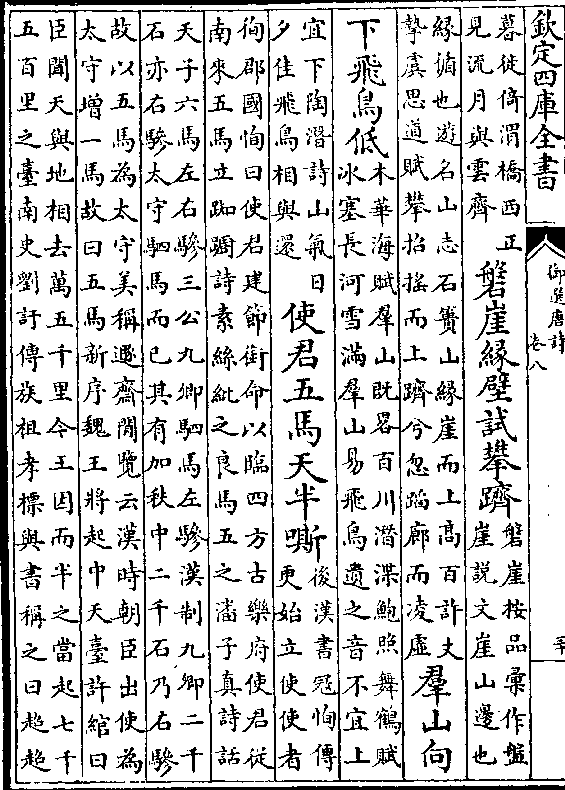 欽定四庫全書
御選唐詩
卷八
暮徙倚渭橋西正
見流月與雲齊
磐崖緣壁試攀躋
磐崖按品彙作盤
崖說文崖山邊也
緣循也遊名山志石簣山緣崖而上高百許丈
摯虞思道賦攀招搖而上躋兮忽蹈廓而凌虛
羣山向
下飛鳥低
木華海賦羣山既畧百川潛渫鮑照舞鶴賦
冰塞長河雪滿羣山易飛鳥遺之音不宜上
宜下陶潛詩山氣日
夕佳飛鳥相與還
使君五馬天半嘶
後漢書冦恂傳
更始立使使者
徇郡國恂曰使君建節銜命以臨四方古樂府使君從
南來五馬立踟躕詩素絲紕之良馬五之潘子真詩話
天子六馬左右驂三公九卿駟馬左驂漢制九卿二千
石亦右驂太守駟馬而已其有加秩中二千石乃右驂
故以五馬為太守美稱遯齋閒覽云漢時朝臣出使為
太守增一馬故曰五馬新序魏王將起中天臺許綰曰
臣聞天與地相去萬五千里今王因而半之當起七千
五百里之臺南史劉訏傳族祖孝標與書稱之曰超超